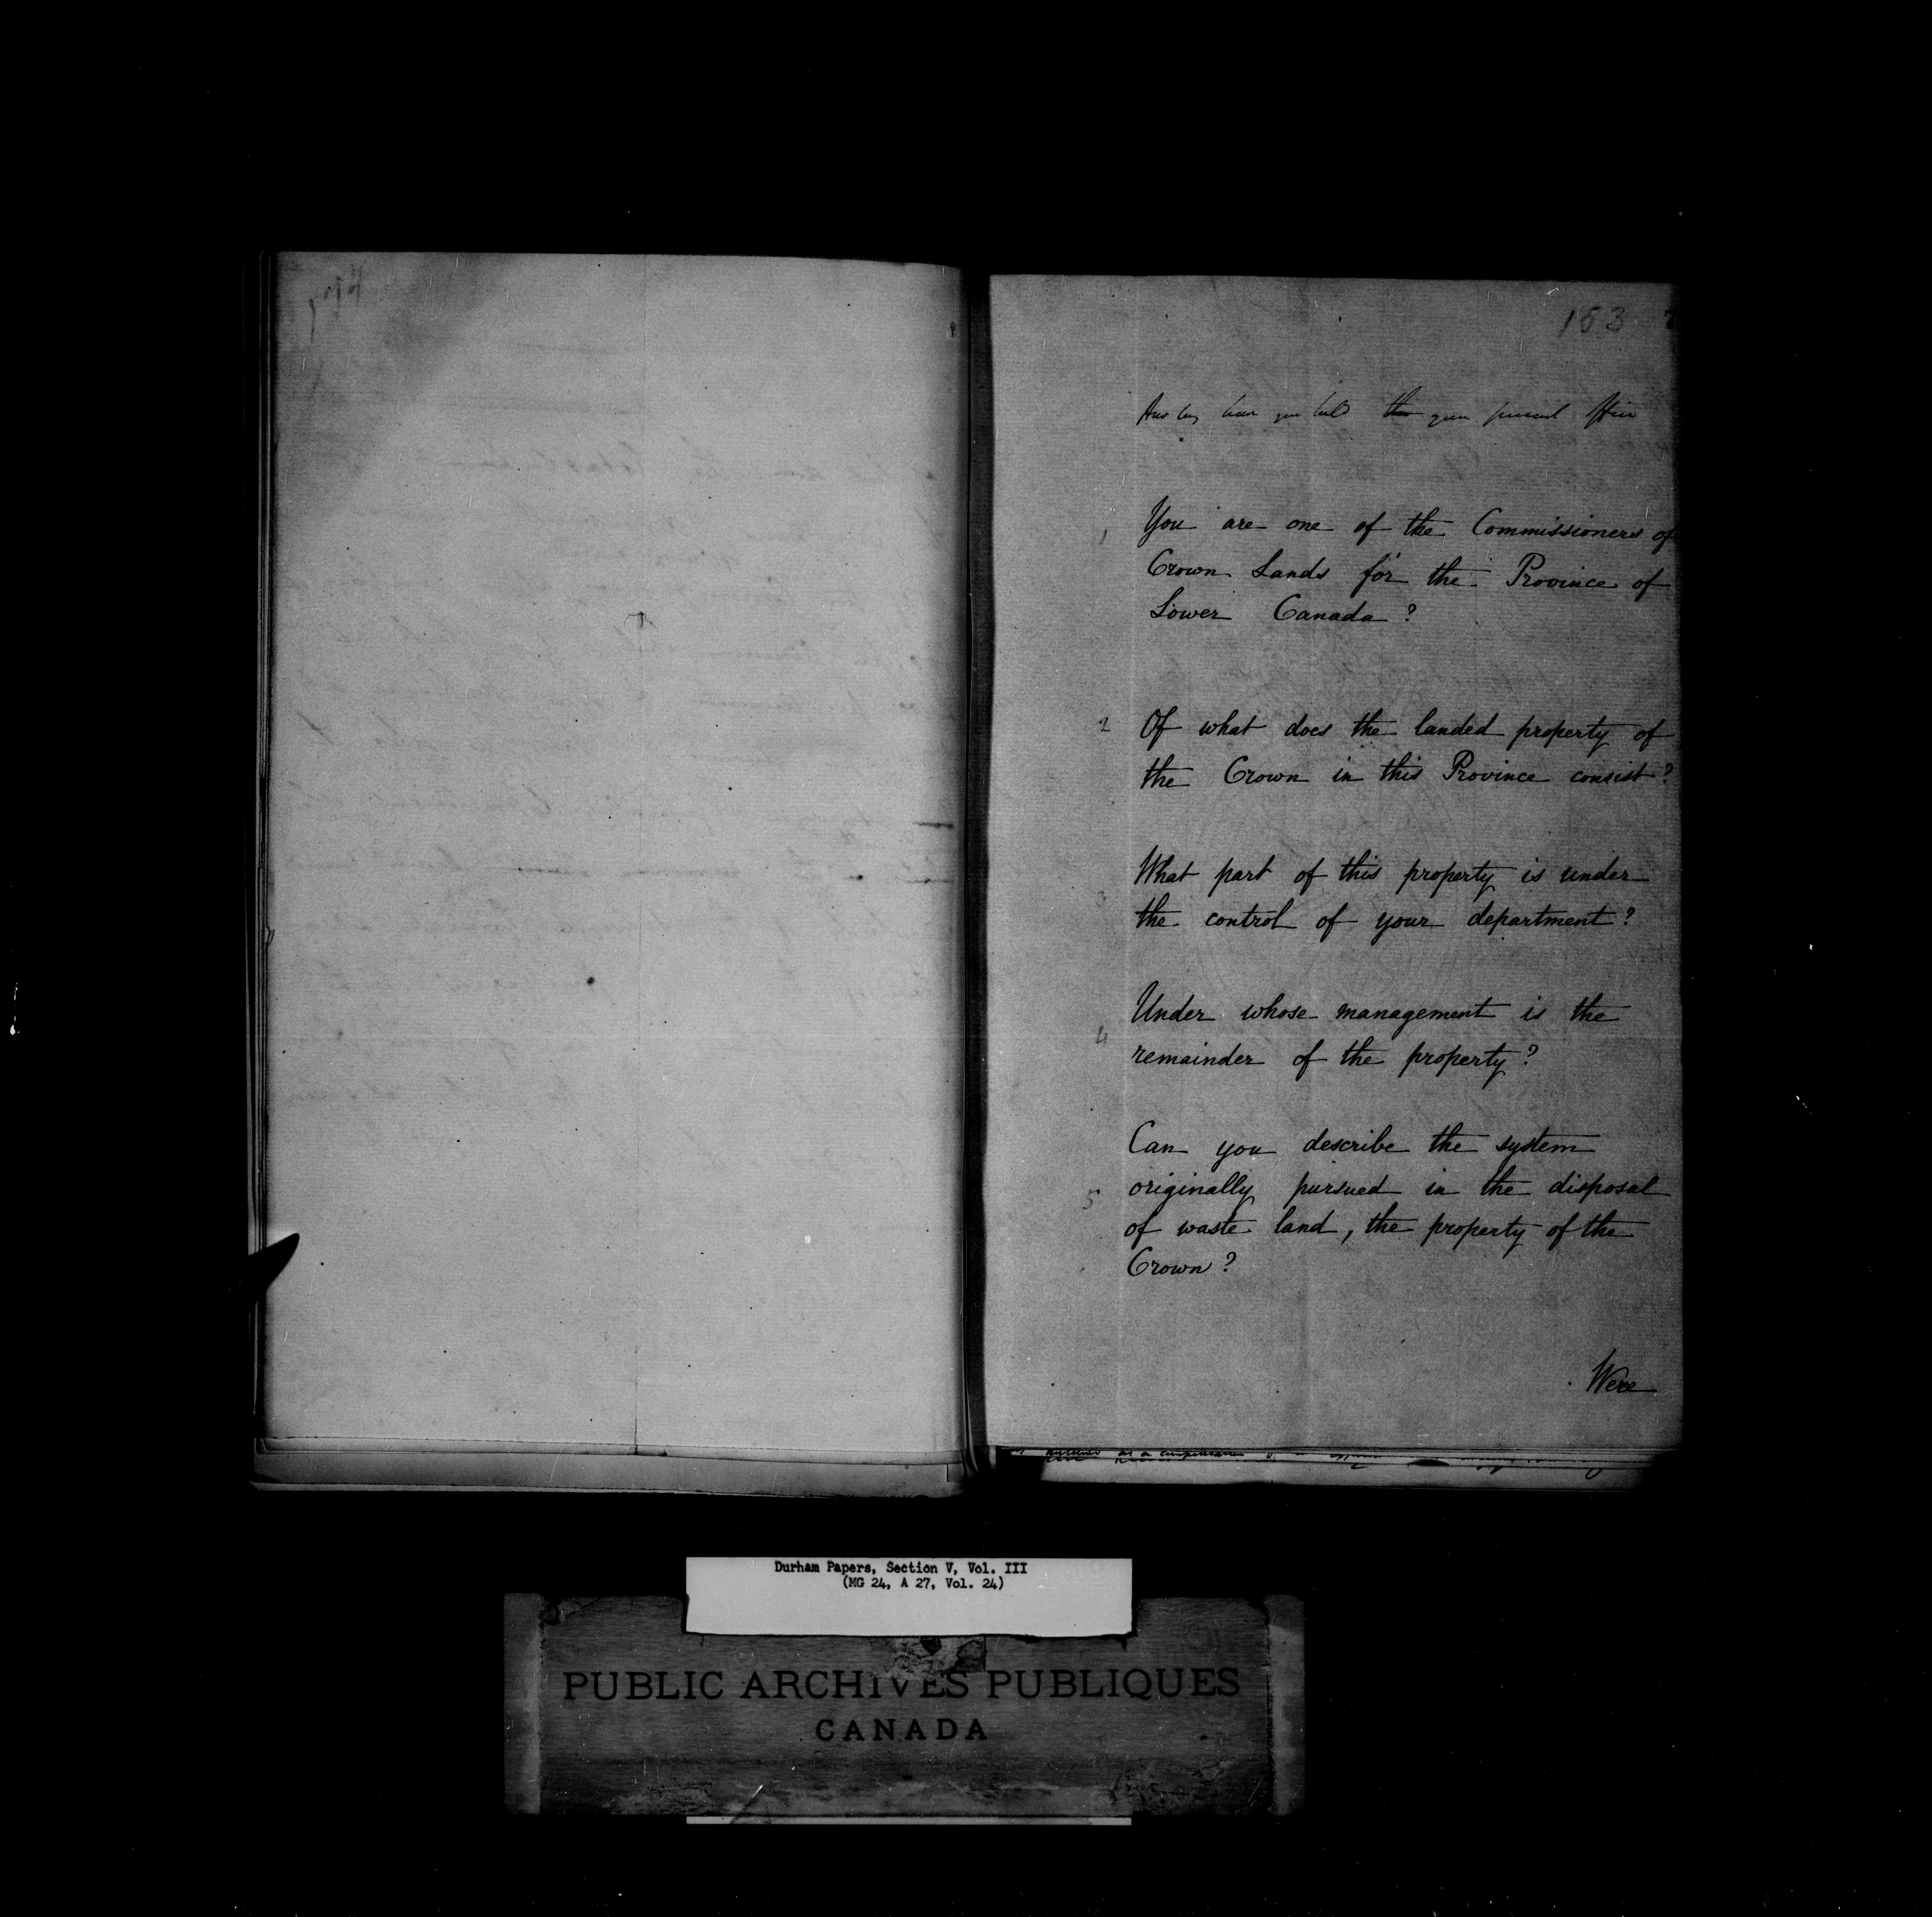 153
How long have you held your present Office
1 You are one of the Commissioners of
Crown Lands for the Province of
Lower Canada?
2 Of what does the landed property of
the Crown in this Province consist?
3 What part of this property is under
the control of your department?
4 Under whose management is the
remainder of the property?
Can you describe the system
5 originally pursued in the disposal
of waste land, the property of the
Crown?
Were
Durham Papers, Section V, Vol. III
(MG 24, A 27, Vol. 24)
PUBLIC ARCHIVES PUBLIQUES
CANADA